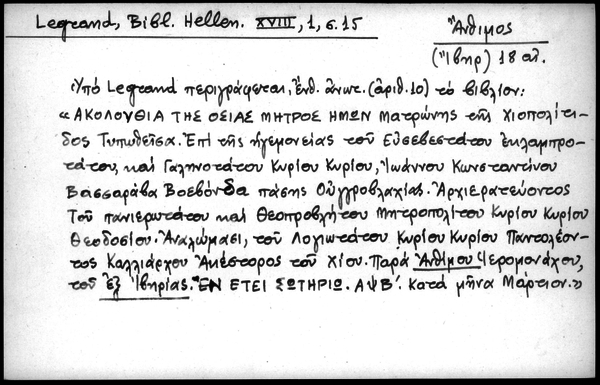 Legrand, Bibl. Hellen. XVIII, 1, σ. 15
Ἄνθιμος
(Ἴβηρ) 18 αἰ.
Ὑπό Legrand περιγράφεται, ἔνθ. ἀνωτ. (ἀριθ. 10) τό βιβλίον:
«ΑΚΟΛΟΥΘΙΑ ΤΗΣ ΟΣΙΑΣ ΜΗΤΡΟΣ ΗΜΩΝ Ματρώνης τῆς Χιοπολίτι-
δος Τυπωθεῖσα. Ἐπί τῆς ἡγεμονείας τοῦ Εὐσεβεστάτου ἐκλαμπρο-
τάτου, καί Γαληνοτάτου Κυρίου Κυρίου, Ἰωάννου Κωνσταντίνου
Βασσαράβα Βοεβόνδα πάσης Οὐγγροβλαχίας. Ἀρχιερατεύοντος
Τοῦ πανιερωτάτου καί Θεοπροβλήτου Μητροπολίτου Κυρίου Κυρίου
Θεοδοσίου. Ἀναλώμασι, τοῦ Λογιωτάτου Κυρίου Κυρίου Παντολέον-
τος Καλλιάρχου Ἀκέστορος τοῦ Χίου. Παρά Ἀνθίμου Ἱερομονάχου,
τοῦ ἐξ Ἰβηρίας. ἘΝ ΕΤΕΙ ΣΩΤΗΡΙῼ. ΑΨΒ'. Κατά μῆνα Μάρτιον.»